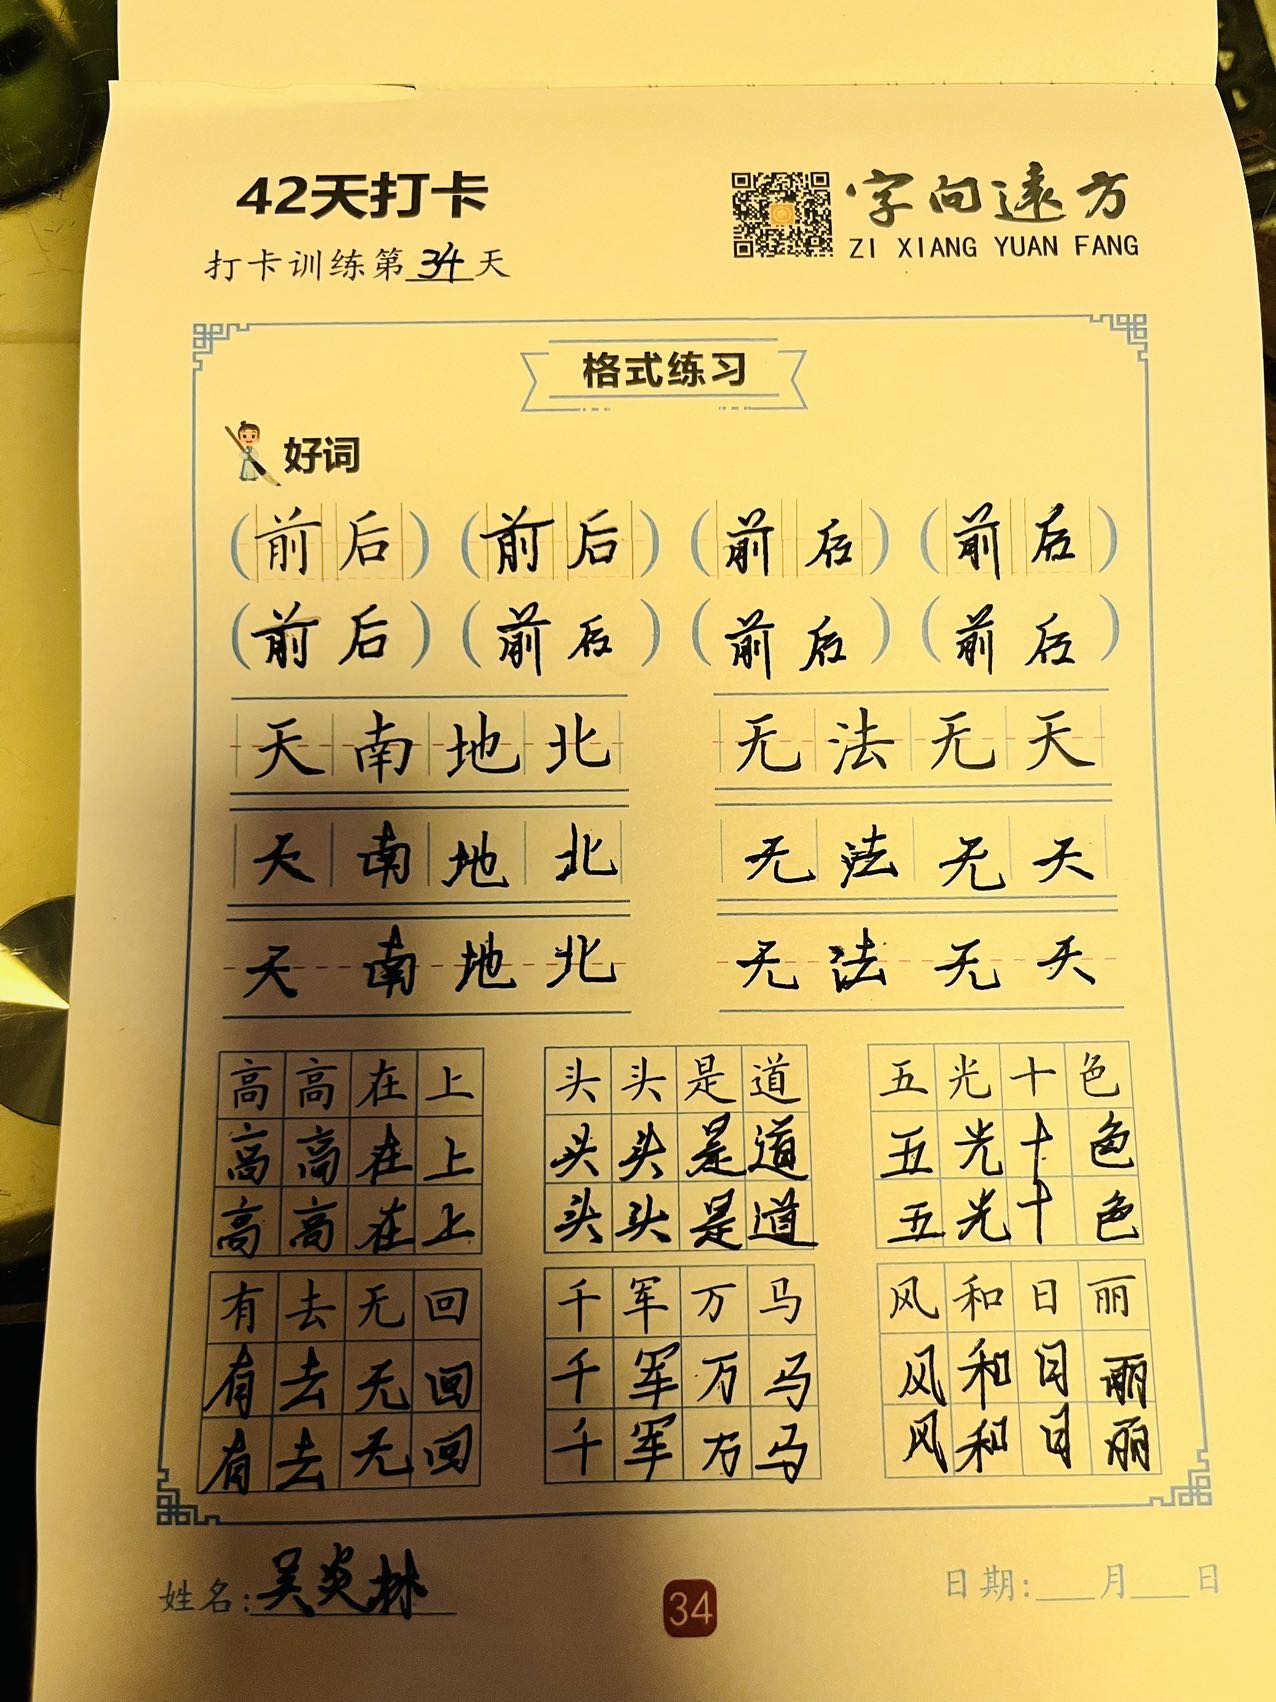 42天打卡
字向遠方
ZI XIANG YUAN FANG
打卡训练第34天
格式练习
好词
(前后) (前后) (前后) (前后)
(前后) (前后) (前后) (前后)
天南地北 无法无天
天南地北 无法无天
天南地北 无法无天
高高在上 头头是道 五光十色
高高在上 头头是道 五光十色
高高在上 头头是道 五光十色
有去无回 千军万马 风和日丽
有去无回 千军万马 风和日丽
有去无回 千军万马 风和日丽
姓名:吴炎林
34
日期:___月___日